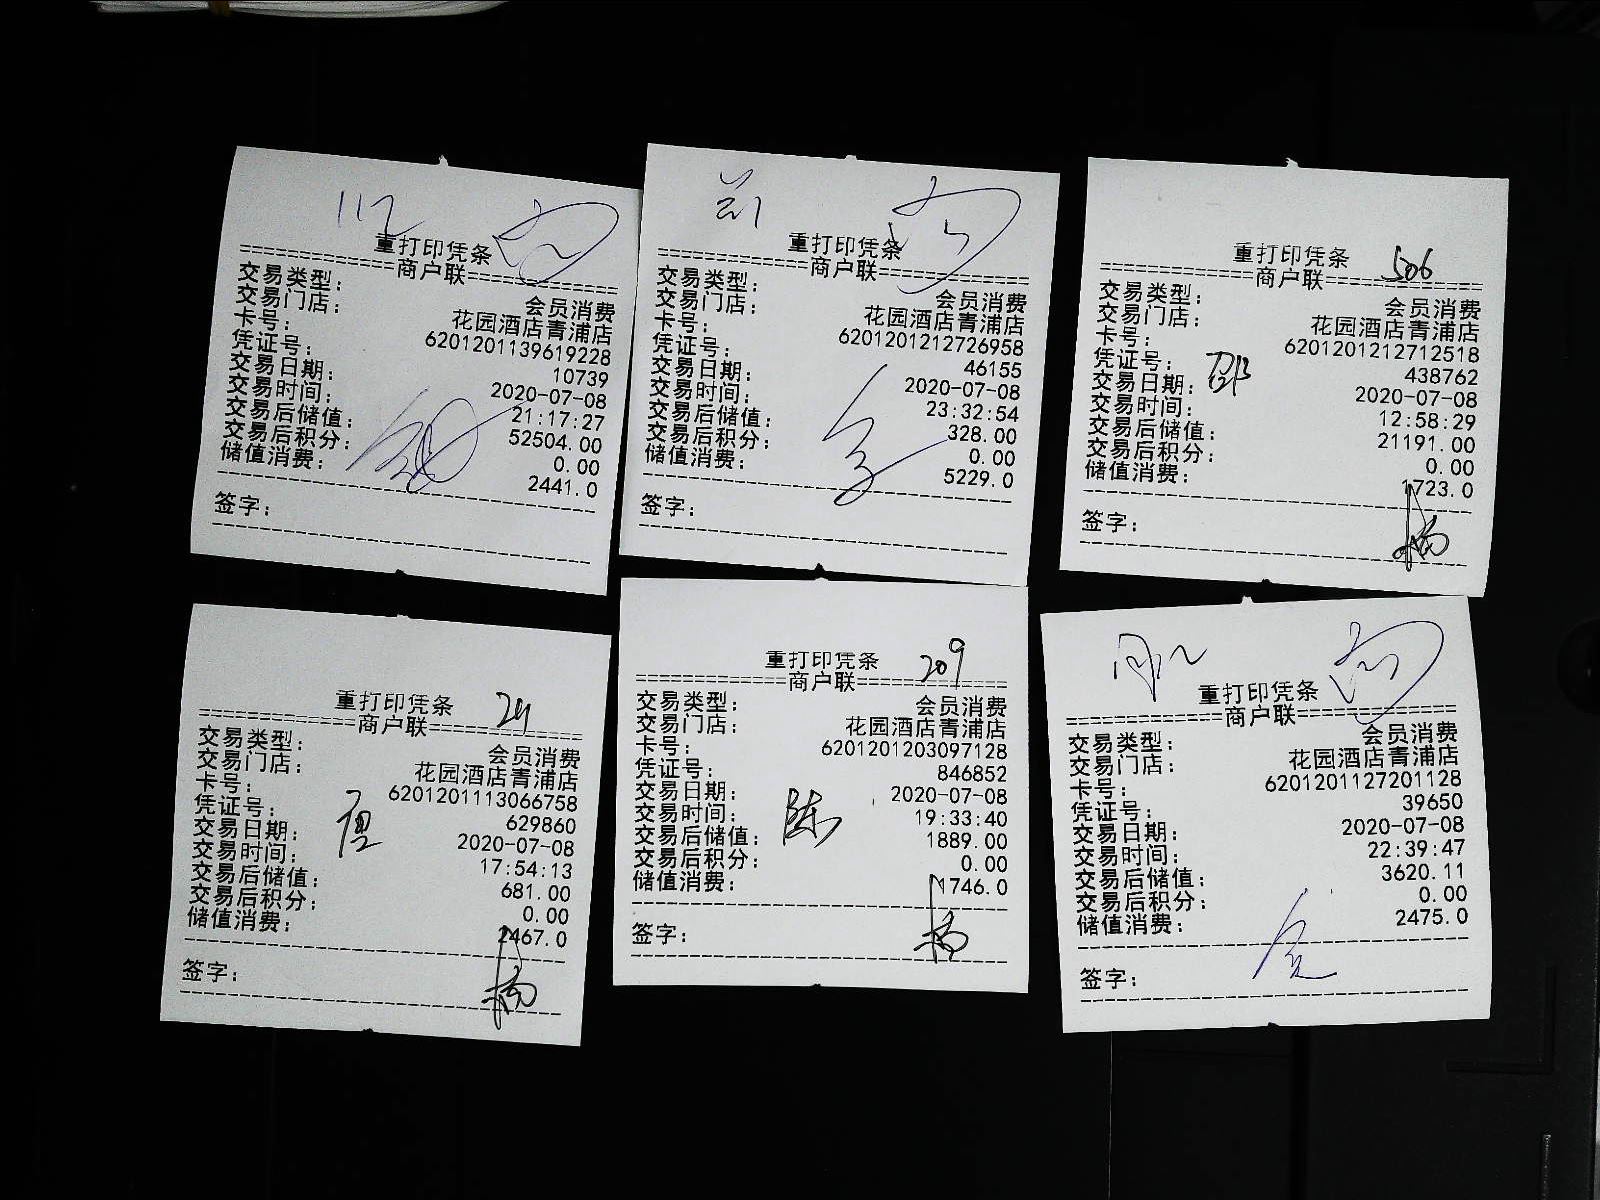 112
重打印凭条
================商户联================
交易类型: 会员消费
交易门店: 花园酒店青浦店
卡号: 6201201139619228
凭证号: 10739
交易日期: 2020-07-08
交易时间: 21:17:27
交易后储值: 52504.00
交易后积分: 0.00
储值消费: 2441.0
签字:
重打印凭条
================商户联================
交易类型: 会员消费
交易门店: 花园酒店青浦店
卡号: 6201201212726958
凭证号: 46155
交易日期: 2020-07-08
交易时间: 23:32:54
交易后储值: 328.00
交易后积分: 0.00
储值消费: 5229.0
签字:
重打印凭条 506
================商户联================
交易类型: 会员消费
交易门店: 花园酒店青浦店
卡号: 6201201212712518
凭证号: 438762
邵
交易日期: 2020-07-08
交易时间: 12:58:29
交易后储值: 21191.00
交易后积分: 0.00
储值消费: 1723.0
签字:
重打印凭条
================商户联================
交易类型: 会员消费
交易门店: 花园酒店青浦店
卡号: 6201201113066758
凭证号: 629860
交易日期: 2020-07-08
交易时间: 17:54:13
交易后储值: 681.00
交易后积分: 0.00
储值消费: 2467.0
签字:
重打印凭条 209
================商户联================
交易类型: 会员消费
交易门店: 花园酒店青浦店
卡号: 6201201203097128
凭证号: 846852
交易日期: 2020-07-08
交易时间: 19:33:40
陈
交易后储值: 1889.00
交易后积分: 0.00
储值消费: 1746.0
签字:
重打印凭条
================商户联================
交易类型: 会员消费
交易门店: 花园酒店青浦店
卡号: 6201201127201128
凭证号: 39650
交易日期: 2020-07-08
交易时间: 22:39:47
交易后储值: 3620.11
交易后积分: 0.00
储值消费: 2475.0
签字: